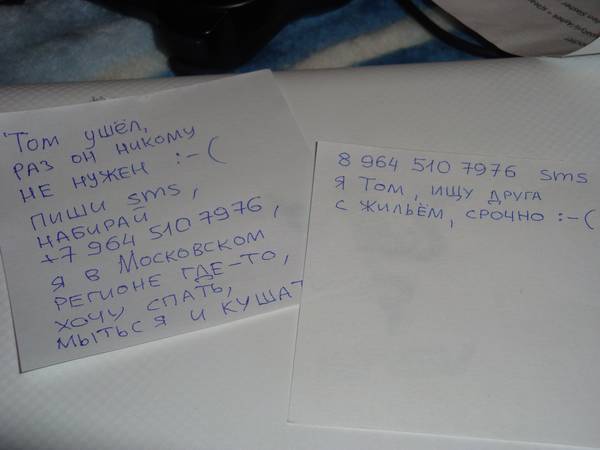 Том ушёл,
раз он никому
не нужен :-(
пиши sms,
набирай
+7 964 510 7976,
я в Московском
регионе где-то,
хочу спать,
мыться и кушат
8 964 510 7976 sms
я Том, ищу друга
с жильём, срочно :-(